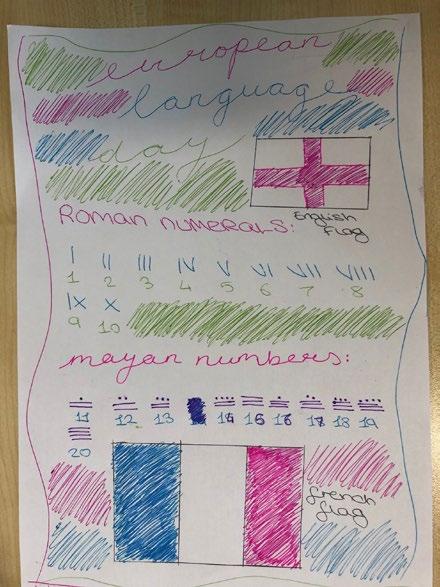 european
language
day
English
Flag
Roman numerals:
I II III IV V VI VII VIII
1 2 3 4 5 6 7 8
IX X
9 10
mayan numbers:
11 12 13 14 15 16 17 18 19
20
french
flag